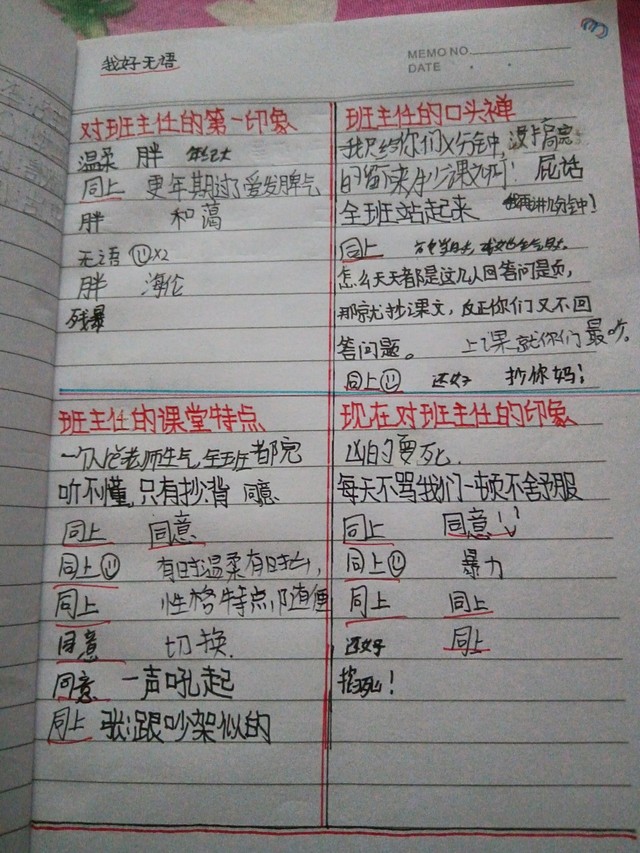 我好无语
MEMO NO.
DATE
对班主任的第一印象
温柔 胖
同上 更年期过了爱发脾气
胖 和蔼
无语 X2
胖 海伦
残暴
班主任的口头禅
我只给你们X分钟,没搞完
的留下来抄课文! 屁话
全班站起来
同上
怎么天天都是这几人回答问题,
那就抄课文,反正你们又不回
答问题。 上课就你们最吵。
同上 还好 抄你妈!
班主任的课堂特点
一个人惹老师生气,全班都完
听不懂,只有抄背 同意
同上 同意
同上 有时温柔有时凶,
同上 性格特点,随便
同意 切换.
同意 一声吼起
同上 歌跟吵架似的
现在对班主任的印象
凶的要死.
每天不骂我们一顿不舍服
同上 同意!
同上 暴力
同上 同上
还好 同上